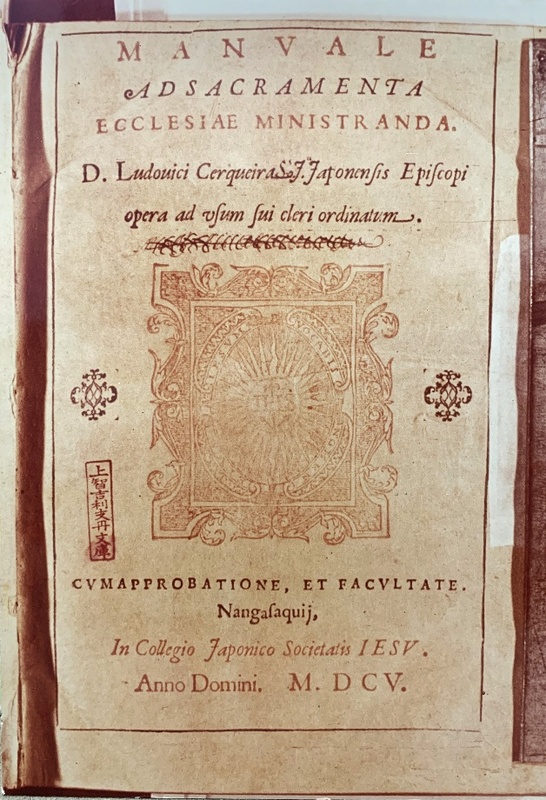 MANVALE
AD SACRAMENTA
ECCLESIAE MINISTRANDA.
D. Ludouici Cerqueira S.J. Japonensis Epiſcopi
opera ad vſum ſui cleri ordinatum.
上智吉利支丹文庫
CVM APPROBATIONE, ET FACVLTATE.
Nangaſaquij,
In Collegio Japonico Societatis IESV.
Anno Domini. M. DCV.